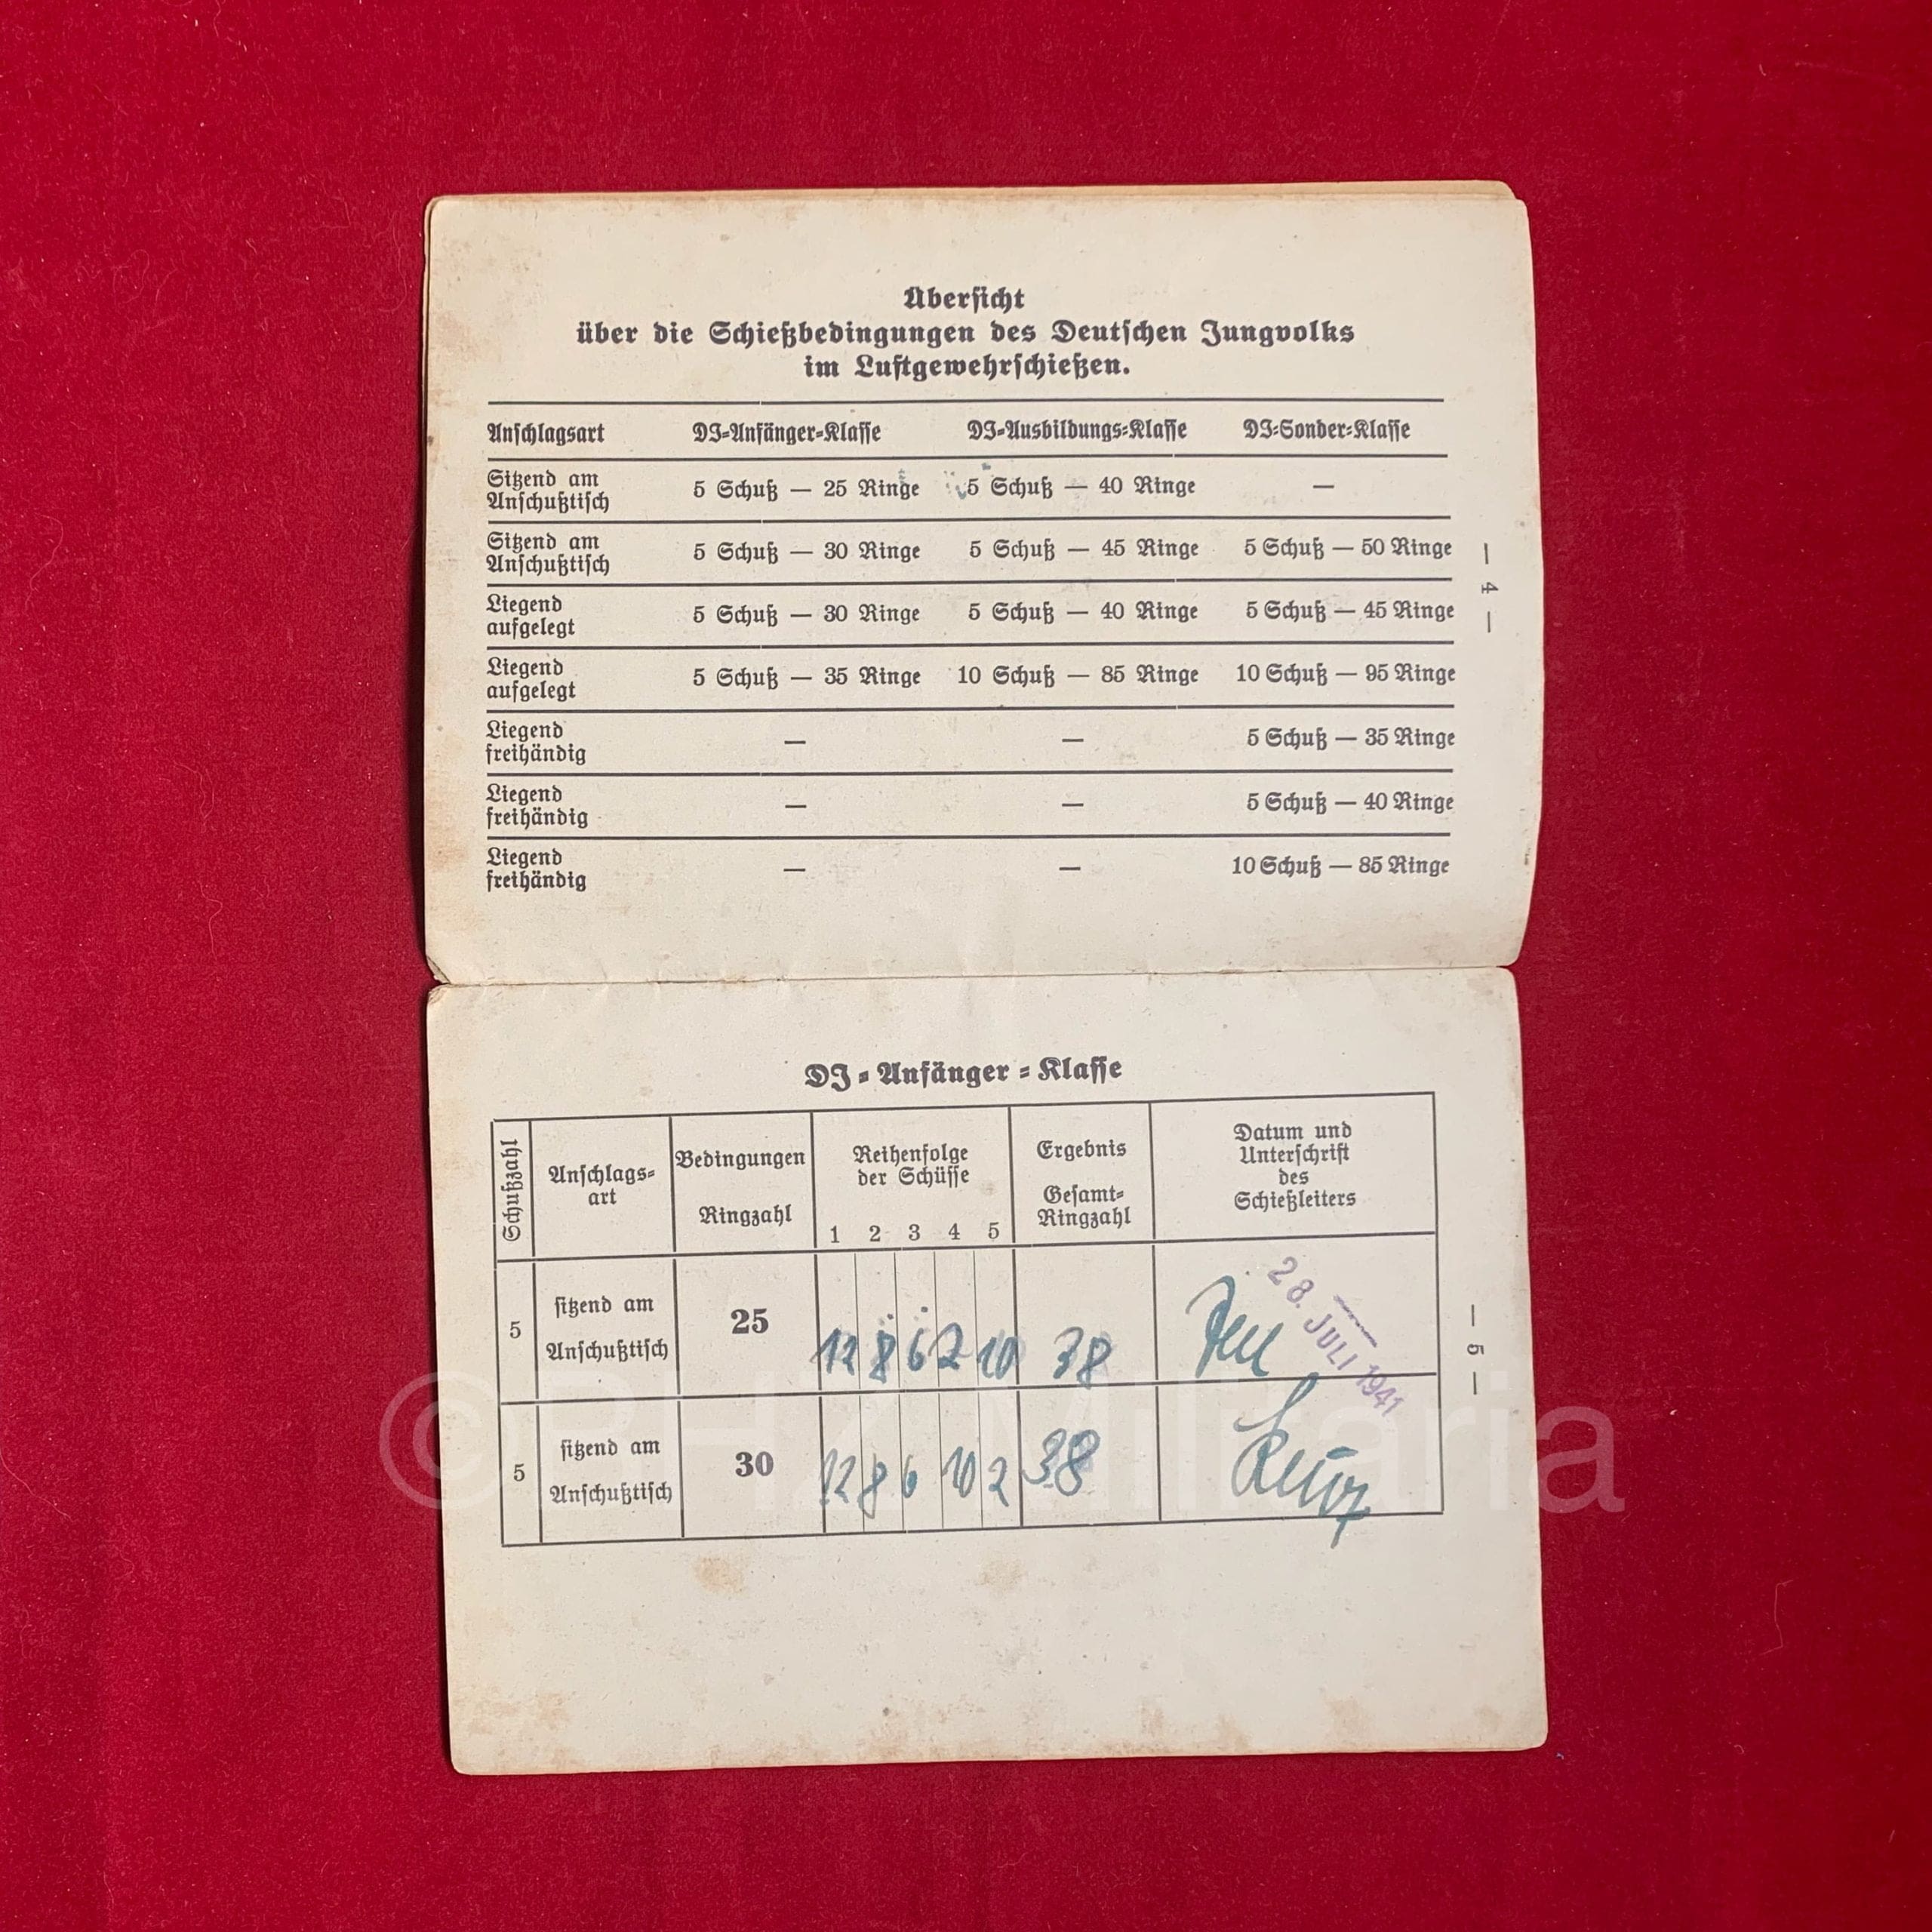 Übersicht
über die Schießbedingungen des Deutschen Jungvolks
im Luftgewehrschießen.
Anschlagsart DJ-Anfänger-Klasse DJ-Ausbildungs-Klasse DJ-Sonder-Klasse
Sitzend am
Anschußtisch 5 Schuß — 25 Ringe 5 Schuß — 40 Ringe —
Sitzend am
Anschußtisch 5 Schuß — 30 Ringe 5 Schuß — 45 Ringe 5 Schuß — 50 Ringe
Liegend
aufgelegt 5 Schuß — 30 Ringe 5 Schuß — 40 Ringe 5 Schuß — 45 Ringe
Liegend
aufgelegt 5 Schuß — 35 Ringe 10 Schuß — 85 Ringe 10 Schuß — 95 Ringe
Liegend
freihändig — — 5 Schuß — 35 Ringe
Liegend
freihändig — — 5 Schuß — 40 Ringe
Liegend
freihändig — — 10 Schuß — 85 Ringe
— 4 —
DJ-Anfänger-Klasse
Schußzahl
Anschlags-
art
Bedingungen
Ringzahl
Reihenfolge
der Schüsse
1 2 3 4 5
Ergebnis
Gesamt-
Ringzahl
Datum und
Unterschrift
des
Schießleiters
5 sitzend am
Anschußtisch 25 12 8 6 2 10 38
28. JULI 1941
5 sitzend am
Anschußtisch 30 12 8 6 10 2 38
— 5 —
©RHZ Militaria